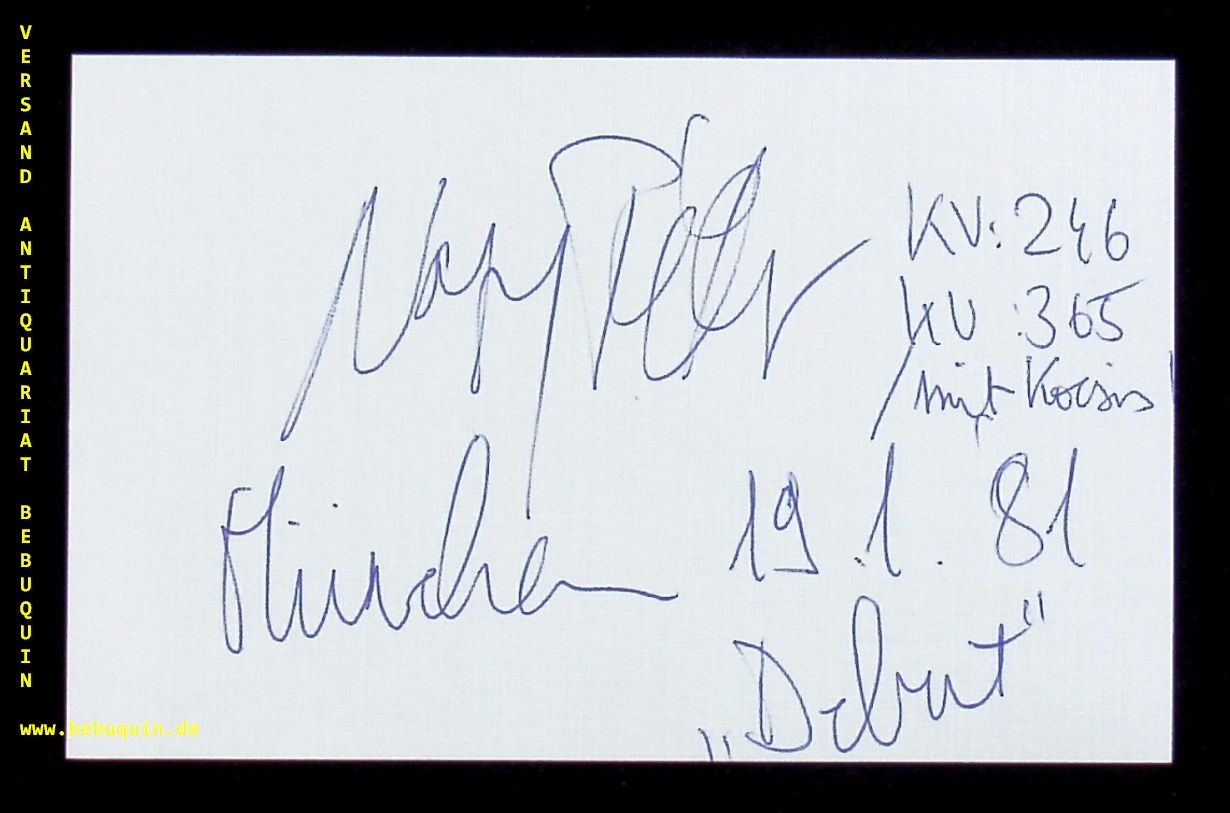 VERSAND ANTIQUARIAT BEBUQUIN
Nagy Péter
KV: 246
KV: 365
mit Kocsis
München 19.1.81
„Debut"
www.bebuquin.de